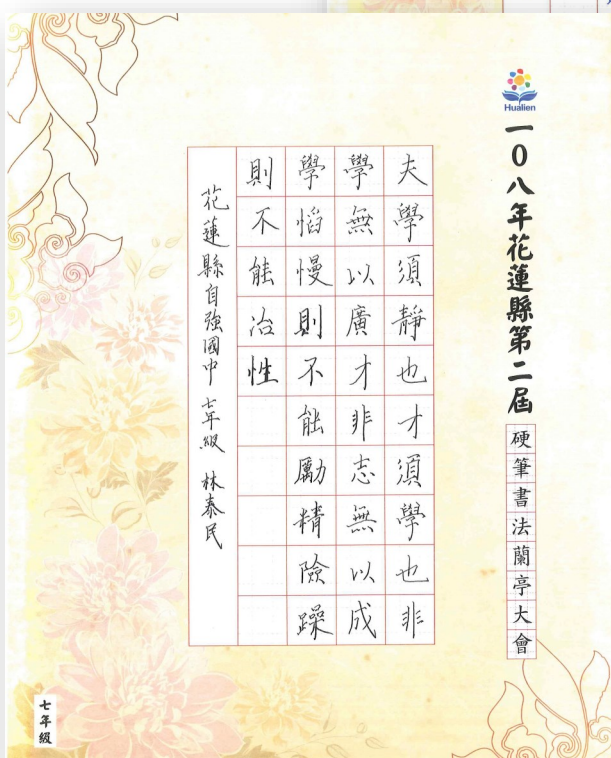 Hualien
一0八年花蓮縣第二屆
硬筆書法蘭亭大會
夫學須靜也才須學也非
學無以廣才非志無以成
學慆慢則不能勵精險躁
則不能治性
花蓮縣自強國中 七年級 林泰民
七年級